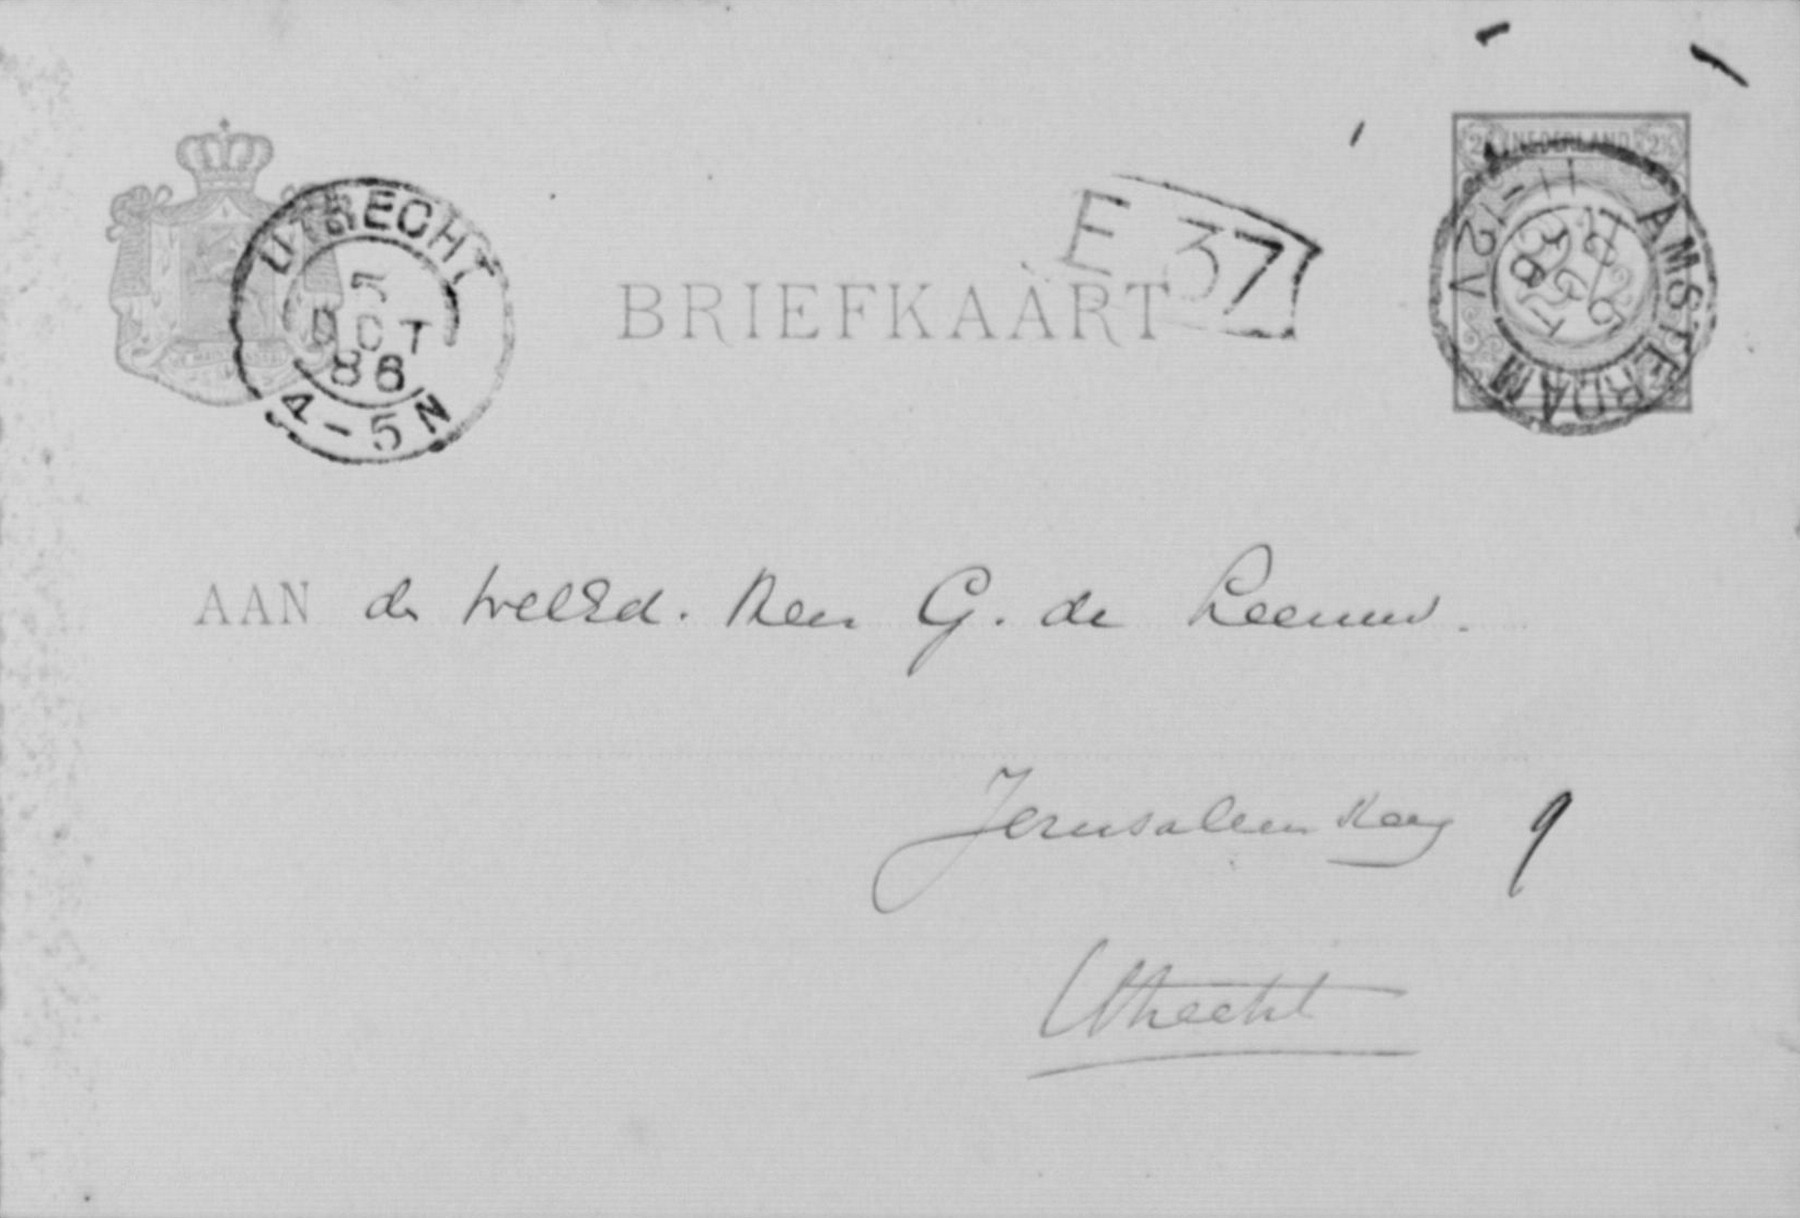 UTRECHT
5
OCT
86
4-5N
BRIEFKAART
E 37
NEDERLAND
2½
AMSTERDAM
11-12V
AAN de WelEd. Heer G. de Leeuw.
Jerusalem steeg 9
Utrecht